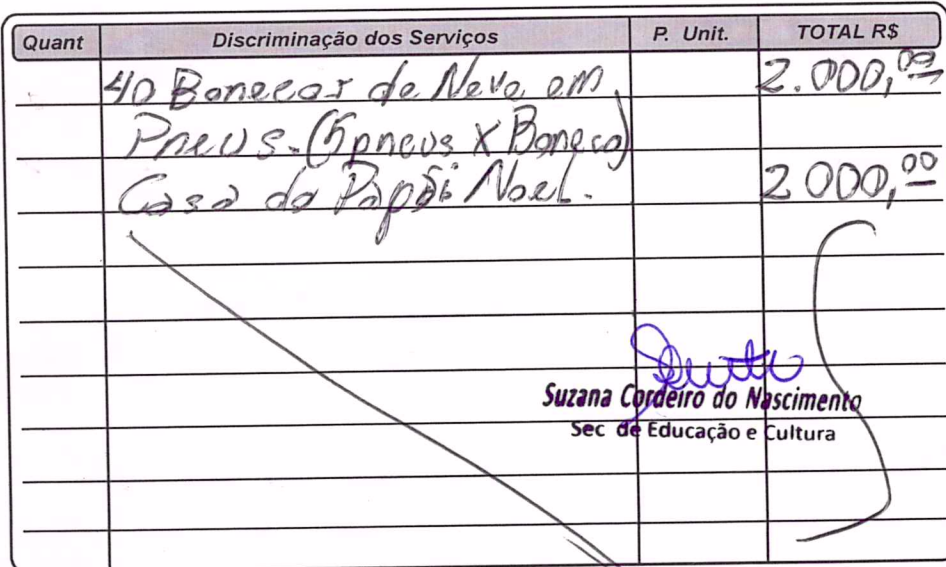 Quant Discriminação dos Serviços P. Unit. TOTAL R$
40 Bonecos de Neve em 2.000,00
Pneus. (5 pneus X Boneco)
Casa do Papai Noel. 2000,00
Suzana Cordeiro do Nascimento
Sec de Educação e Cultura